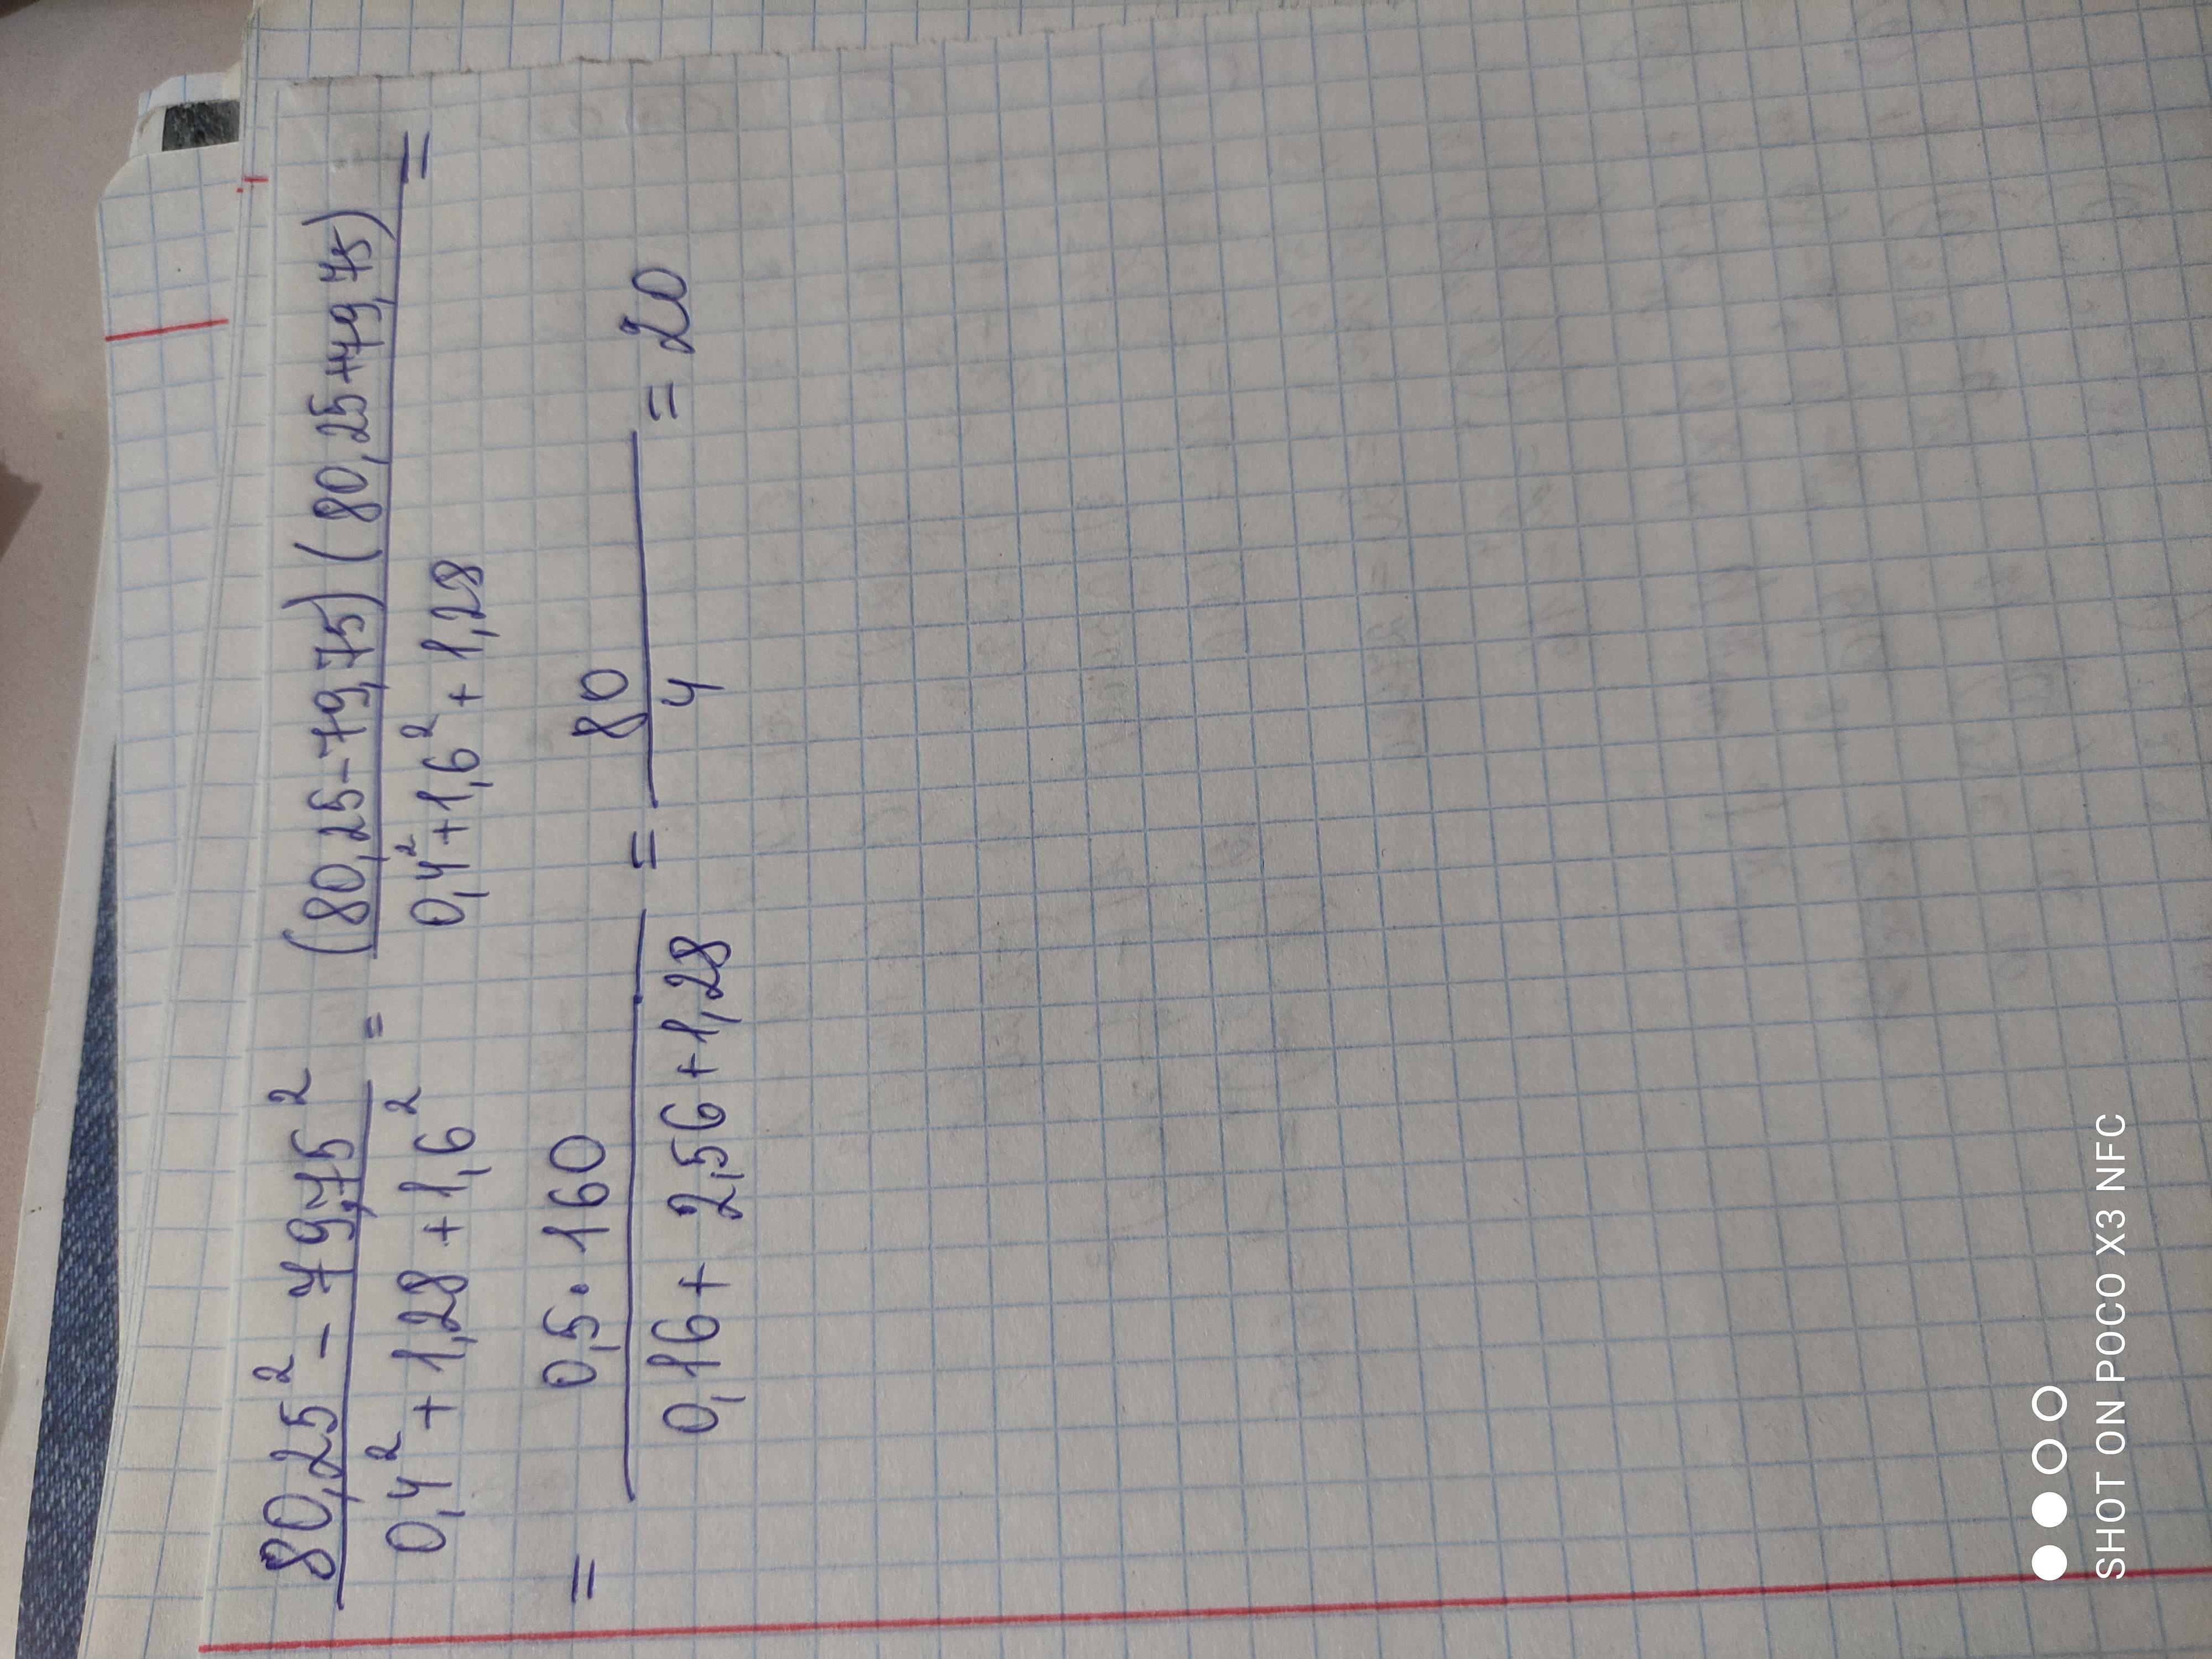 80,25² - 79,75² / 0,4² + 1,28 + 1,6² = (80,25-79,75)(80,25+79,75) / 0,4²+1,6²+1,28 =
= 0,5·160 / 0,16 + 2,56+1,28 = 80 / 4 = 20
SHOT ON POCO X3 NFC